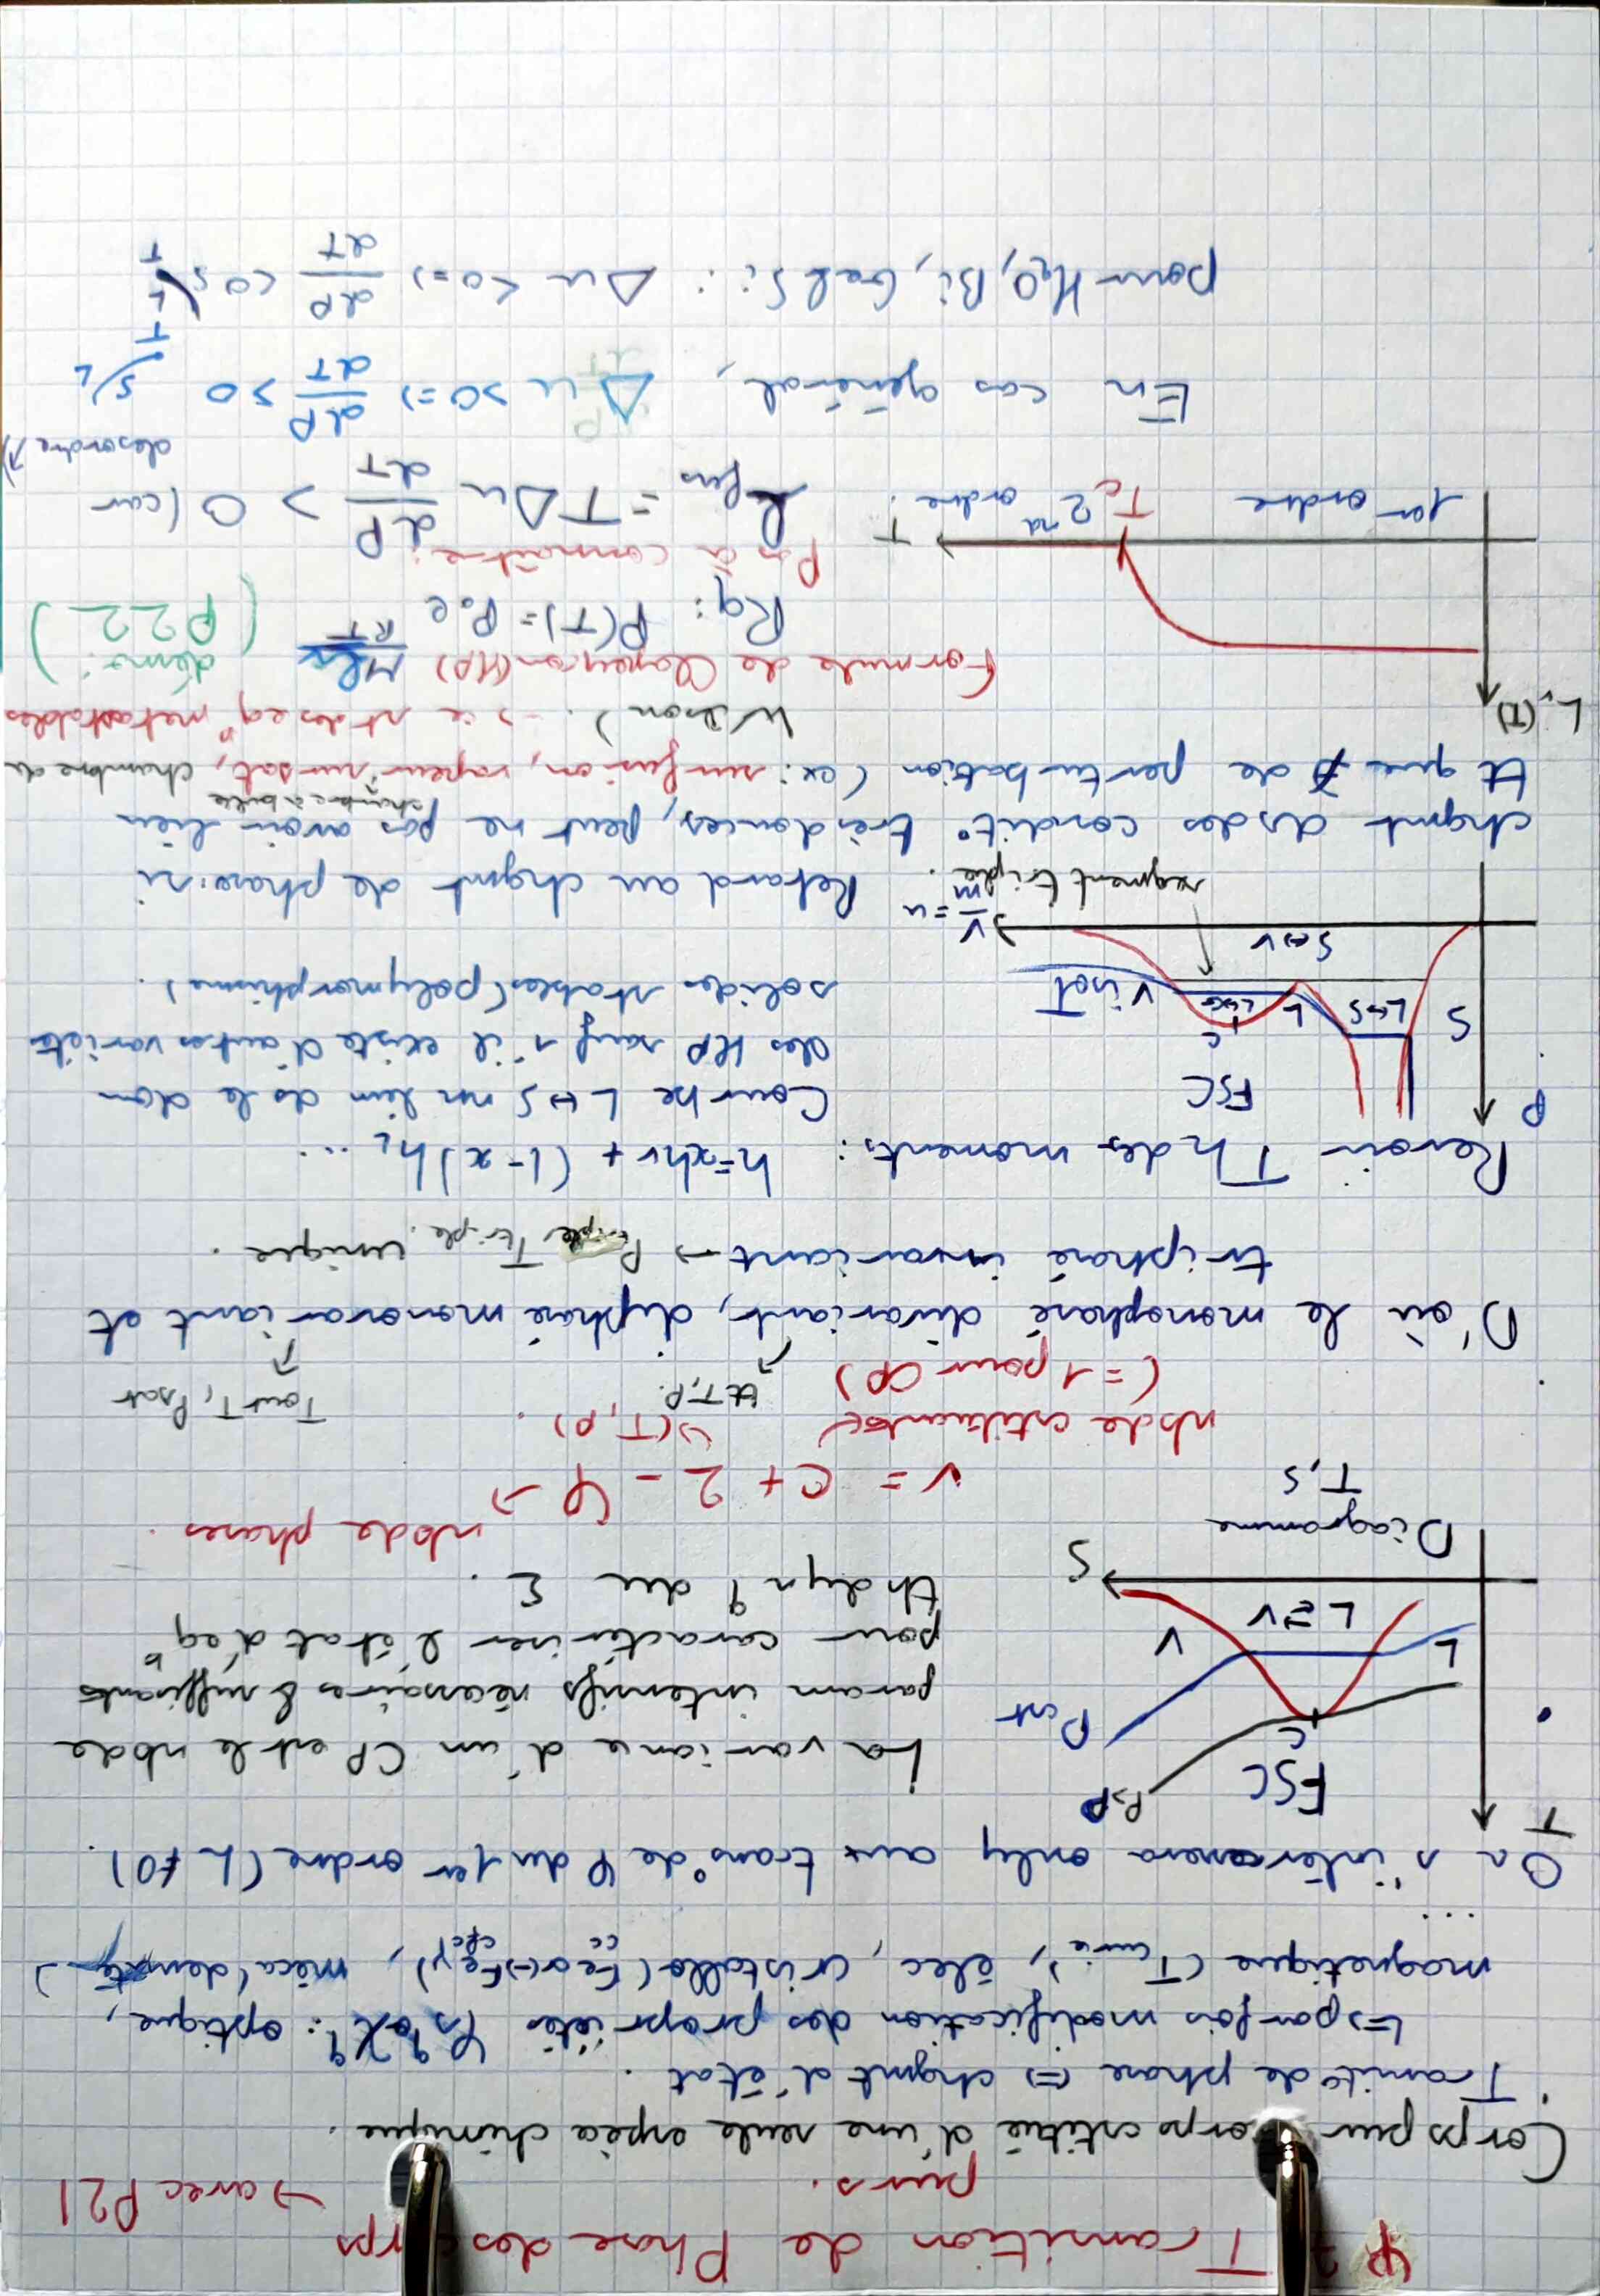 φ7 Transition de Phase des corps
purs. → avec P21
Corps pur : corps cstitué d'une seule espèce chimique.
Transit° de phase ⇔ chgmt d'état.
↳ parfois modification des propriétés φsq χq : optique,
magnétique (T curie), élec, cristallo (Feα → Feγ), méca (densité)
cc cfc
...
On s'intéressera only aux trans° de φ du 1er ordre (L ≠ 0).
T
P>P
FSC
C
Pcst
L
V
L⇌V
S
Diagramme
T,S
La variance d'un CP est le nbde
param intensifs nécessaires & suffisants
pour caractériser l'état d'éq
thdyn q du Σ.
nbde phases.
v = c + 2 - φ →
nbde cstituants (T,P).
(=1 pour CP)
tt T,P.
T ou T, Psat
D'où le monophasé divariant, diphasé monovariant et
triphasé invariant → P triple T triple unique.
Revoir Th des moments : h = xhv + (1-x)hL ...
P
FSC
C
S
L⇔S
L
L⇔G
V
isoT
S⇔V
V/m = u
segment triple.
Courbe L⇔S nn lim ds le dom
des HP sauf s'il existe d'autres variétés
solides stables (polymorphisme).
Retard au chgmt de phase : si
chgmt ds des condit° très douces, peut ne pas avoir lieu
chambre à bulle
tt que ∄ de perturbation (ex : surfusion, vapeur sursat, chambre de
Wilson). → ce st des eq métastables
L,(T)
1er ordre
Tc
2nd ordre.
T
Formule de Clapeyron (HP)
Rq : P(T) = P₀e
RT
(démo : P22)
Pas à connaître :
Lfus = TΔu dP/dT > 0 (car
désordre ↗)
En cas général, Δu >0 ⇒ dP/dT > 0 S/L
T
pour H₂O, Bi, Ga & Si : Δu <0 ⇒ dP/dT <0 S\L
T